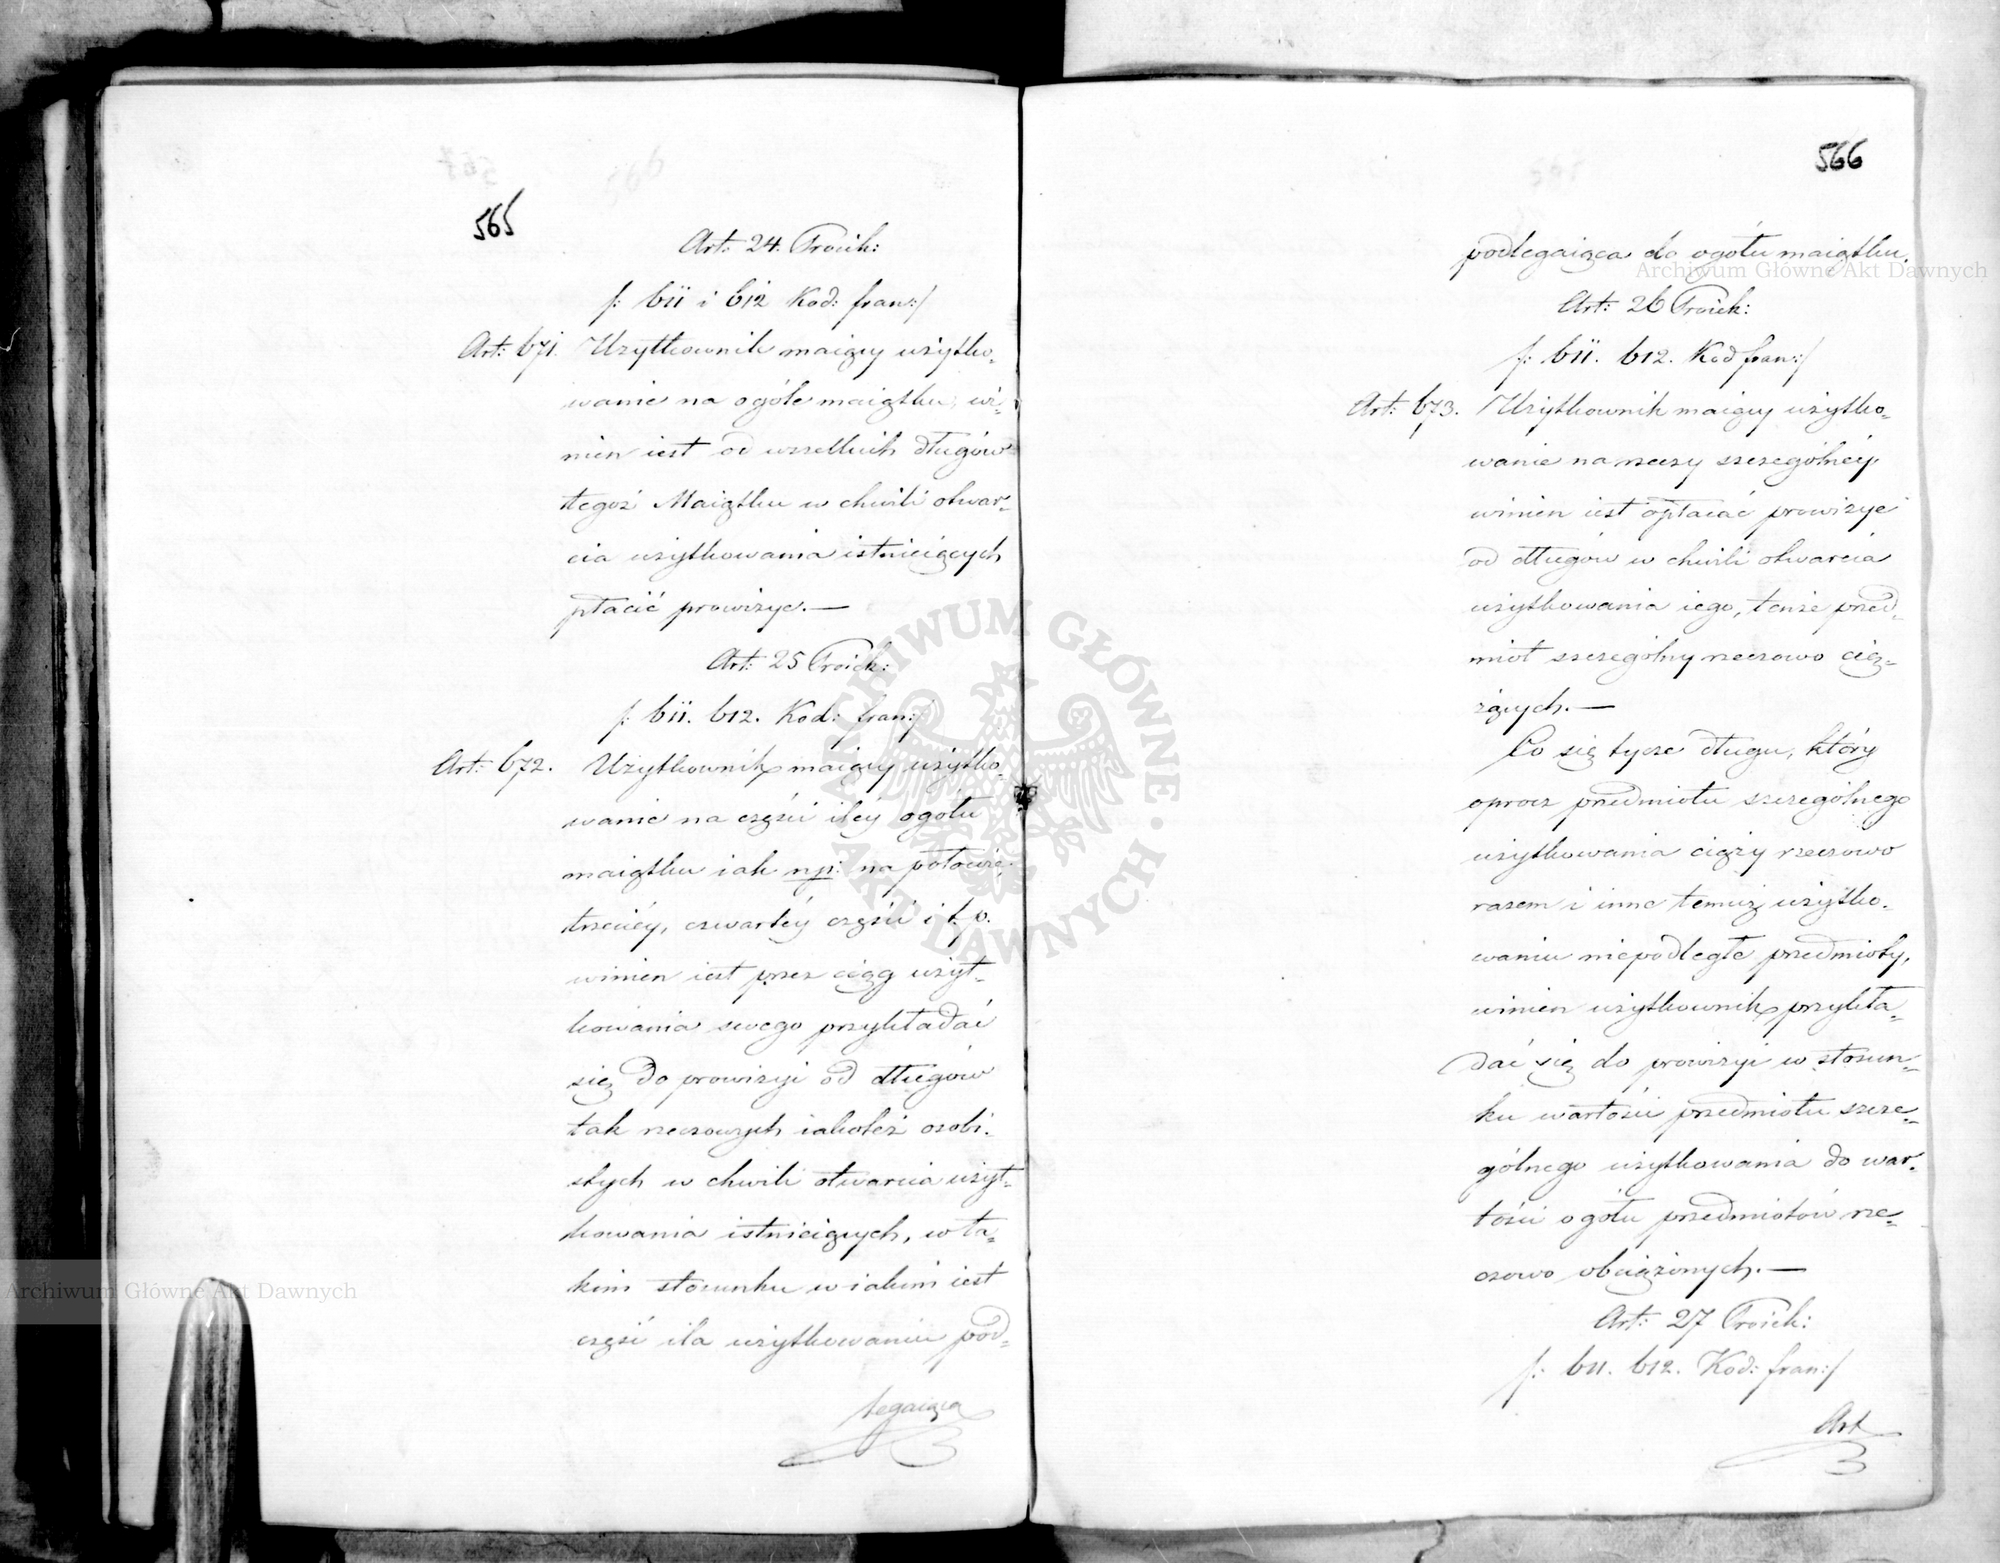 565
Art: 24. Proiek:
/: 611 i 612 Kod: fran:/
Art: 671. Użytkownik maiący użytko-
wanie na ogóle maiątku, wi-
nien iest od wszelkich długów
tegoż Maiątku w chwili otwar-
cia użytkowania istnieiących
płacić prowizye. —
Art: 25 Proiek:
/: 611. 612. Kod: fran:/
Art: 672. Użytkownik maiący użytko-
wanie na części iléy ogółu
maiątku iak np: na połowie,
trzeciéy, czwartéy części i t. p.
winien iest przez ciąg użyt-
kowania swego przykładać
się do prowizyi od długów
tak rzeczowych iakoteż osobi-
stych w chwili otwarcia użyt-
kowania istnieiących, w ta-
kim stosunku w iakim iest
część ila użytkowaniu pod-
legaiąca
566
podlegaiąca do ogółu maiątku.
Art: 26 Proiek:
/: 611. 612. Kod fran:/
Art: 673. Użytkownik maiący użytko-
wanie na rzeczy szczególnéy,
winien iest opłacać prowizye
od długów w chwili otwarcia
użytkowania iego, tenże przed-
miot szczególny rzeczowo cią-
żących. —
Co się tycze długu, który
oprocz przedmiotu szczególnego
użytkowania ciąży rzeczowo
razem i inne temuż użytko-
waniu niepodległe przedmioty,
winien użytkownik przykła-
dać się do prowizyi w stosun-
ku wartości przedmiotu szcze-
gólnego użytkowania do war-
tości ogółu przedmiotów rze-
czowo obciążonych. —
Art: 27 Proiek:
/: 611. 612. Kod: fran:/
Art
Archiwum Główne Akt Dawnych
Archiwum Główne Akt Dawnych
ARCHIWUM GŁÓWNE · AKT DAWNYCH ·